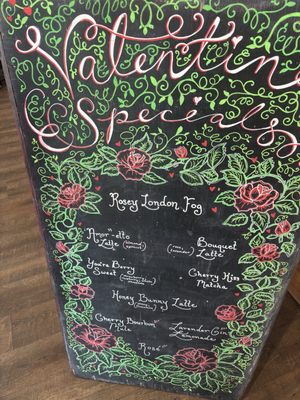 Valentine
Specials
Rosey London Fog
Amor-etto
Latte
Bouquet
Latte
You're Berry
Sweet
Cherry Kiss
Matcha
Honey Bunny Latte
Cherry Bourbon
Lavender Gin
Lemonade
Rosé